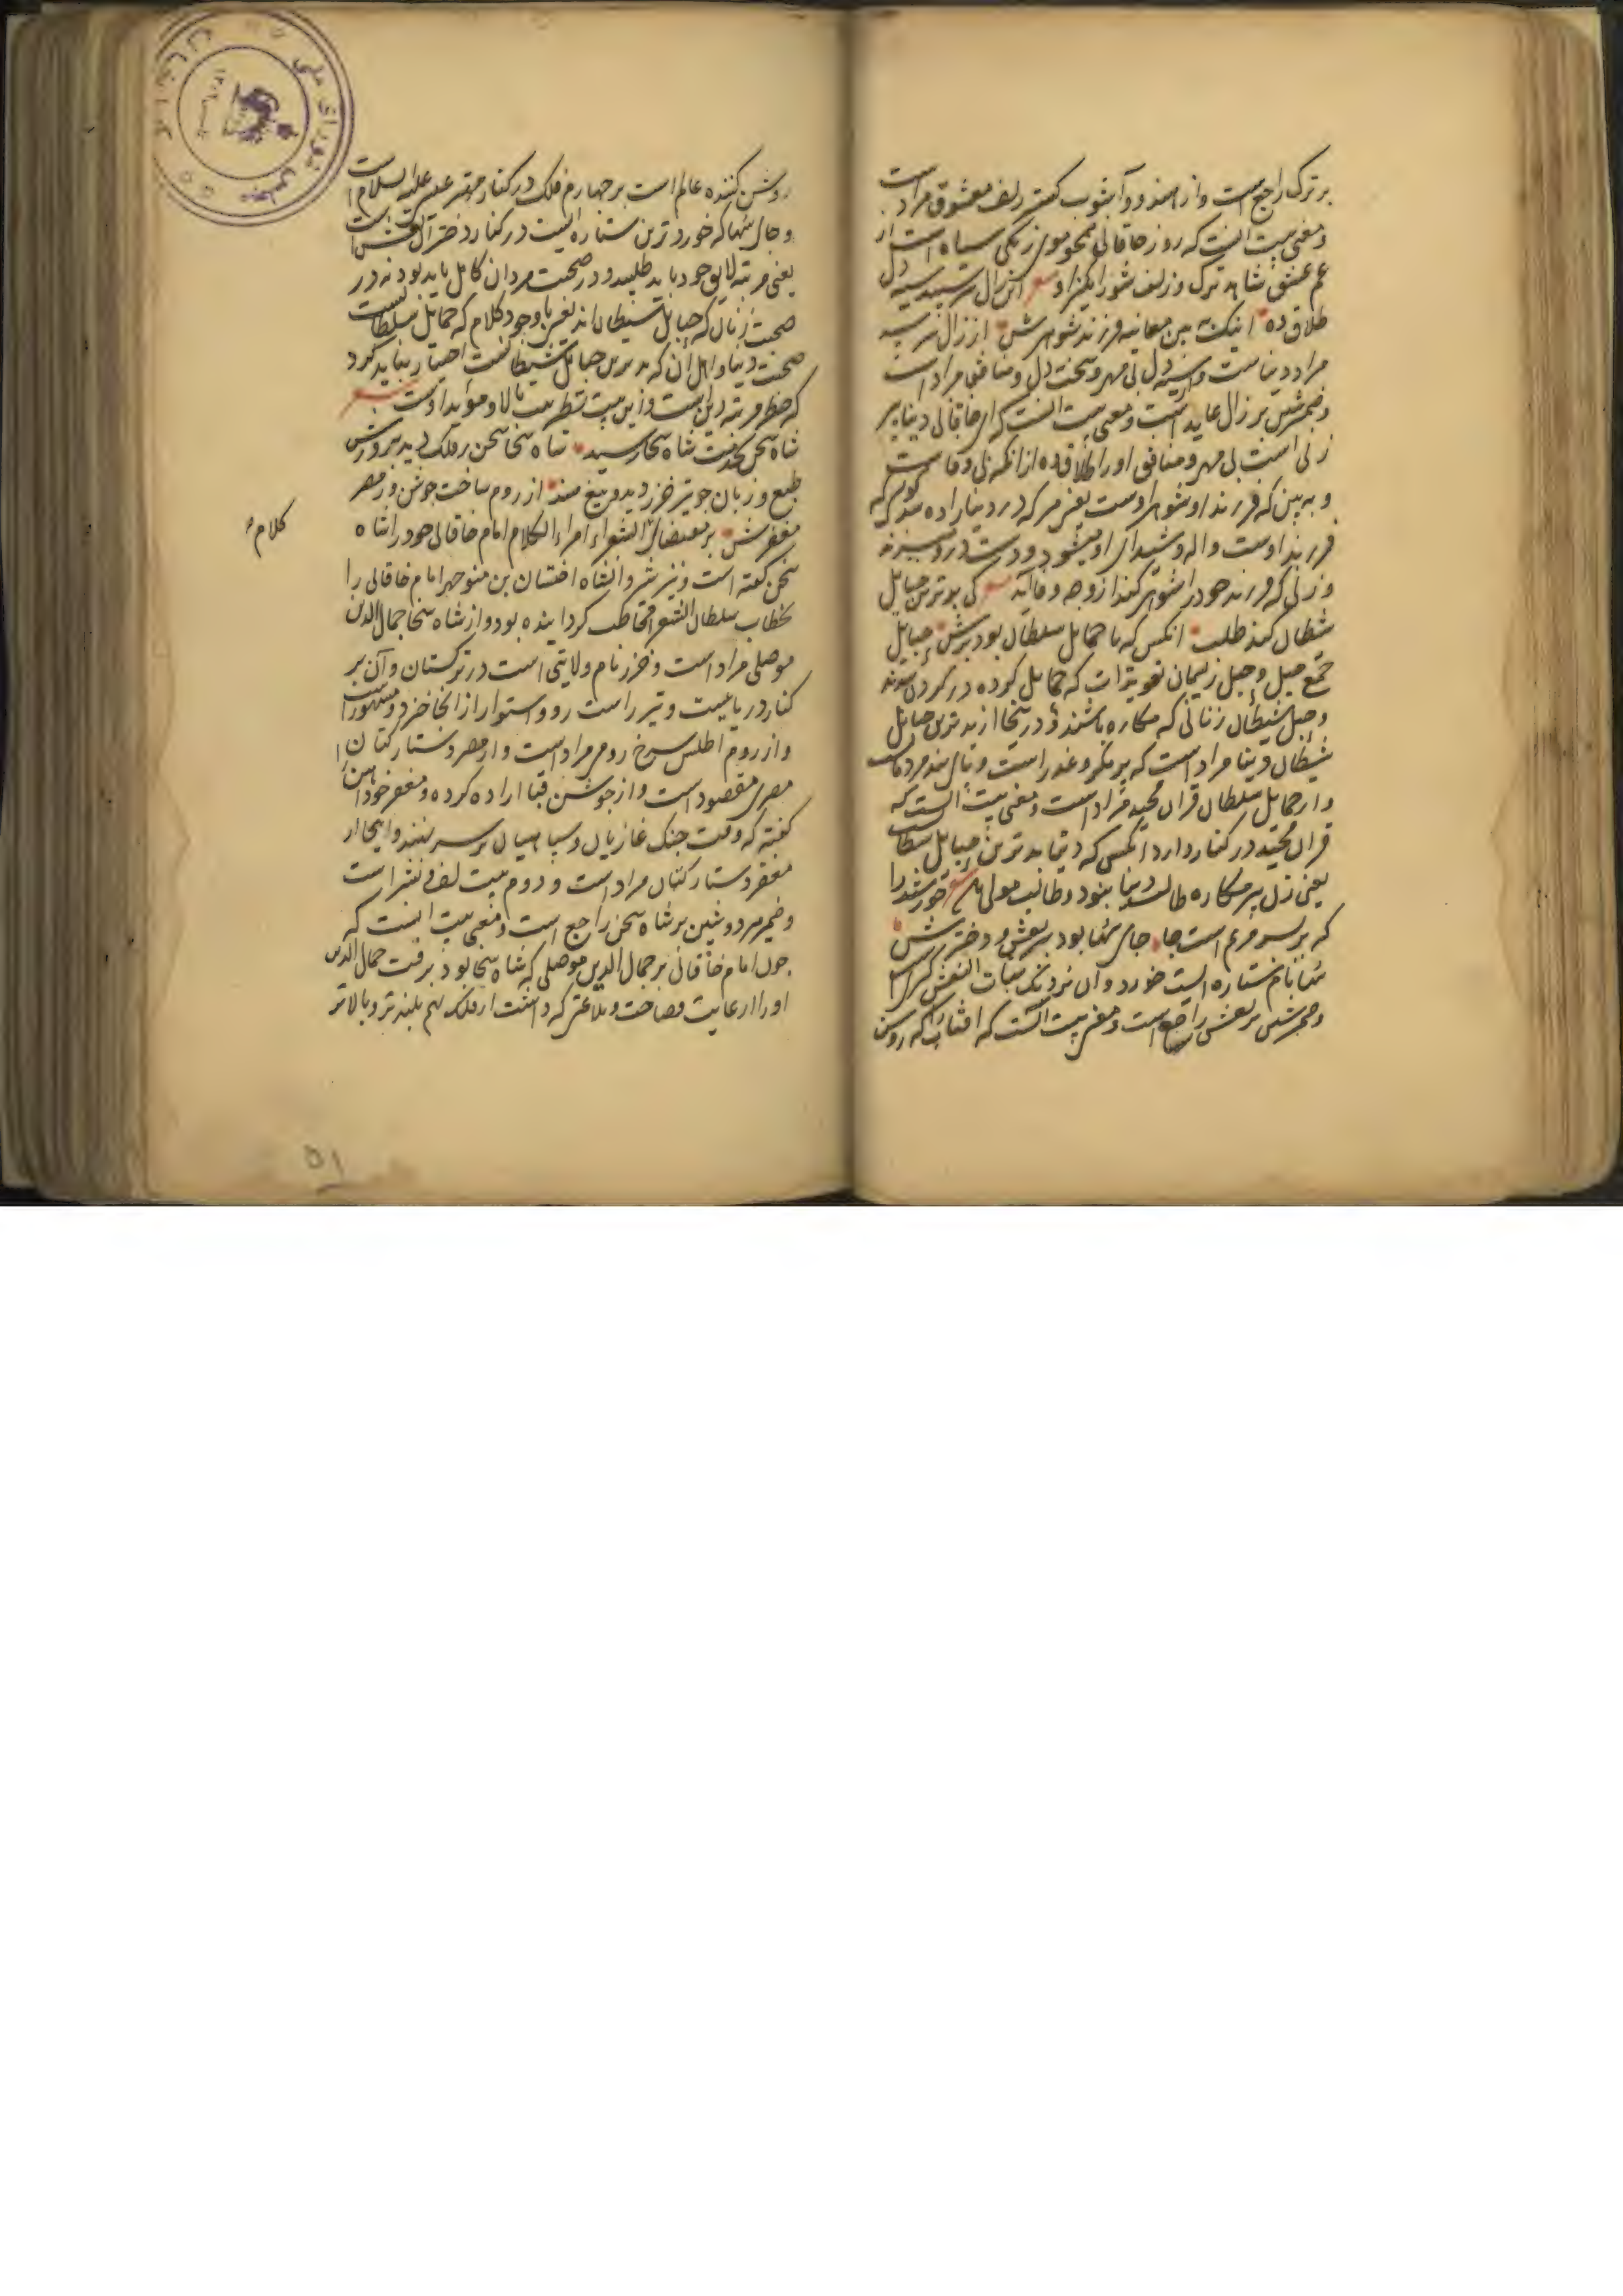 بر ترک راجع است و از هندو و آشوب کمند زلف معشوق مراد است
و معنی بیت آنست که روز خاقانی همچو موی زنگی سیاه است از
غم عشق شاهد ترک و زلف شورانگیز او شعر این زال سرسپید سیه دل
طلاق ده اینک ببین معاینه فرزند شوهرش از زال سرسپید
مراد دنیاست و از سیه دل بی مهر و سخت دل و منافق مراد است
و ضمیر شین بر زال عاید است و معنی بیت آنست که ای خاقانی دنیا پیر
زنی است بی مهر و منافق او را طلاق ده از آنکه بی وفاست
و به بین که فرزند او شوهر اوست یعنی هر که در دنیا زاده شد چون که
فرزند اوست واله و شیدای او میشود و دست در و میزند
و زنی که فرزند خود را شوهر کند ازو چه وفا آید شعر کی بدترین حبایل
شیطان کند طلب آنکس که با حمایل سلطان بود برش حبایل
جمع حبل و حبل ریسمان تعویذات که حمایل کرده در گردن
و حبل شیطان زنانی که مکاره باشند و درینجا از بدترین حبایل
شیطان دنیا مراد است که پر مکر و غدر است
و از حمایل سلطان قرآن مجید مراد است و معنی بیت آنست که
قرآن مجید در کنار دارد آنکس که دنیا بدترین حبایل شیطان
یعنی زن پیر مکاره طالب دنیا نبود و طالب مولی شعر خورشید را
که بر سر مریم است جا جای سها بود ببر نعش و دخترش
سها نام ستاره ایست خورد و آن نزدیک بنات النعش
و ضمیر شین بر نعش راجع است و معنی بیت آنست که آفتاب را که روشن
روشن کننده عالم است بر چهارم فلک در کنار مهتر عیسی علیه السلام است
و جای سها که خوردترین ستاره ایست در کنار دختر آن نعش است
یعنی مرتبه لایق خود باید طلبید و در صحبت مردان کامل باید بود نه در
صحبت زنان که حبایل شیطان اند یعنی با وجود کلام که حمایل سلطانیست
صحبت دنیا و اهل آن که بدترین حبایل شیطانست اختیار نباید کرد
که حفظ مرتبه درین است و این بیت تنظیر بیت بالا و مؤید اوست شعر
شاه سخن بخدمت شاه سخا رسید شاه سخا سخن ز فلک دید برترش
طبع و زبان چو تیر خزر دید و تیغ هند از روم ساخت جوشن و از مصر
مغفرش بر مقتضای الشعراء امراء الکلام امام خاقانی خود را شاه
کلام
سخن گفته است و نیز شروانشاه اخستان بن منوچهر امام خاقانی را
بخطاب سلطان الشعرا مخاطب گردانیده بود و از شاه سخا جمال الدین
موصلی مراد است و خزر نام ولایتی است در ترکستان و آن بر
کنار دریاییست و تیر راست رو و استوار از انجا خیزد و مشهور است
و از روم اطلس سرخ رومی مراد است و از مصر دستار کتان
مصری مقصود است و از جوشن قبا اراده کرده و مغفر خود آهن
گفته که وقت جنگ غازیان و سپاهیان بر سر نهند و اینجا از
مغفر دستار کتان مراد است و دوم بیت لف و نشر است
و ضمیر هر دو شین بر شاه سخن راجع است و معنی بیت اینست که
چون امام خاقانی بر جمال الدین موصلی که شاه سخا بود برفت جمال الدین
او را از رعایت فصاحت و بلاغتی که داشت از فلک هم بلندتر و بالاتر
۵۱